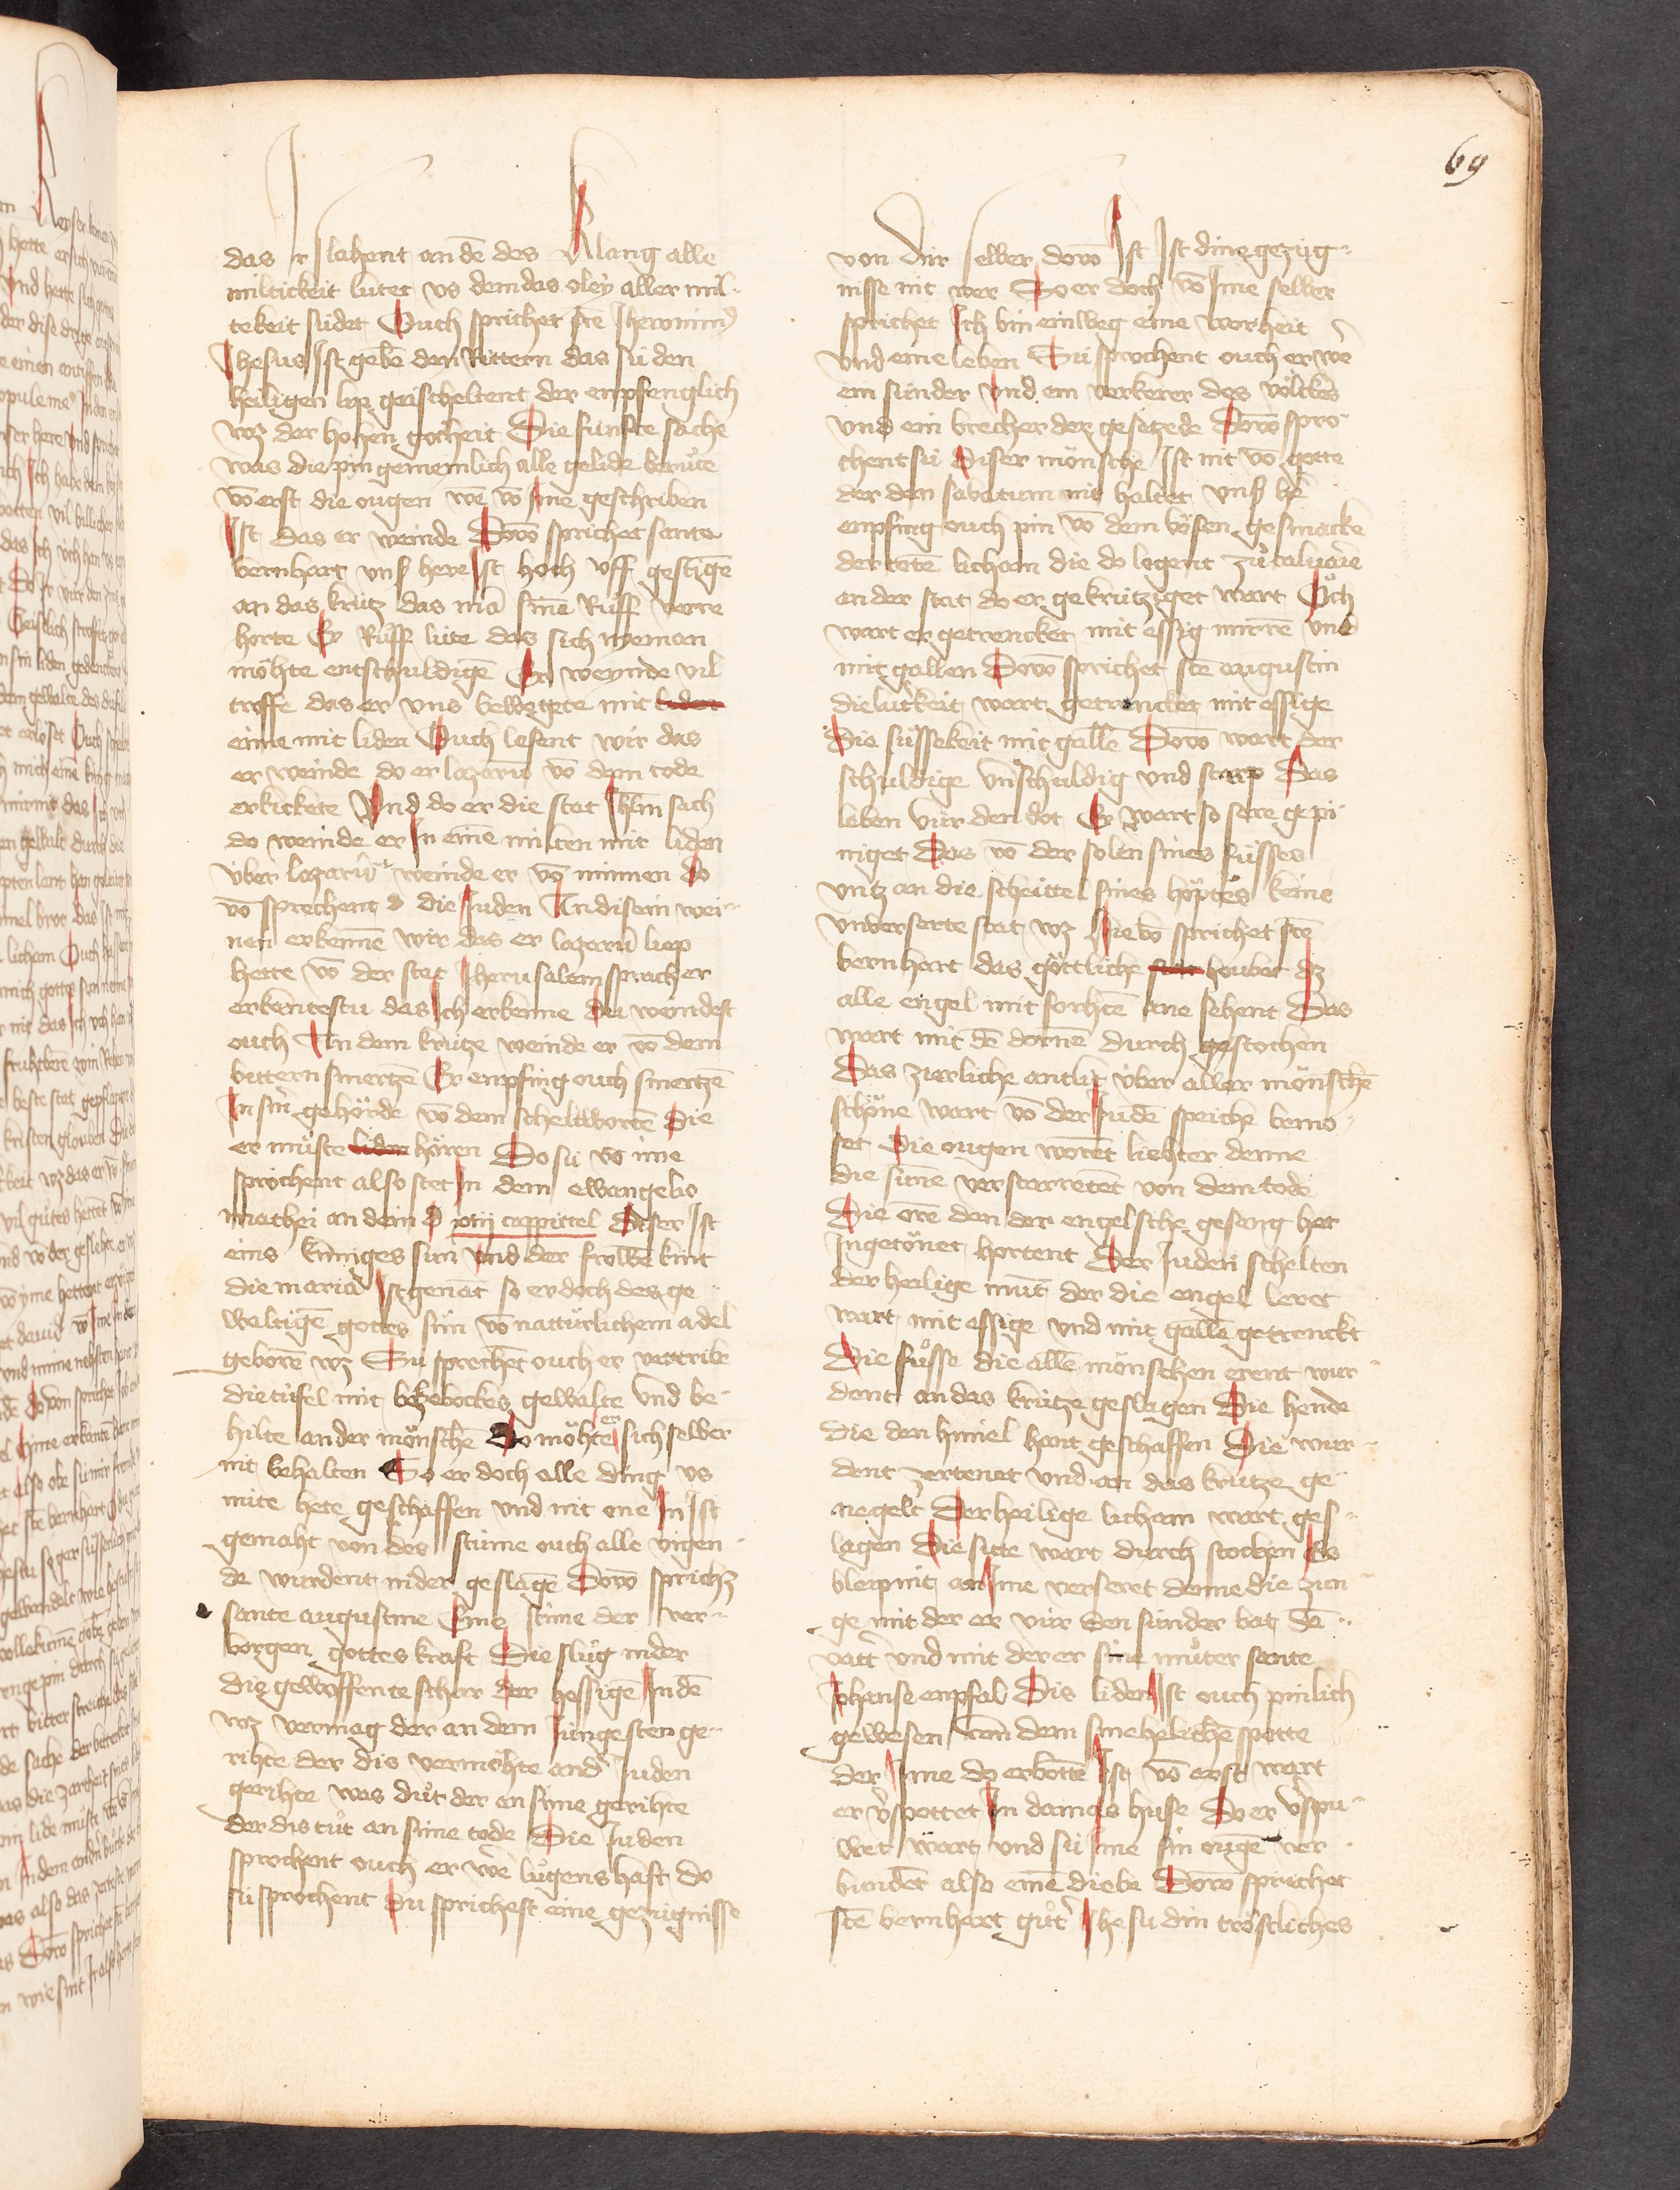 69
das Ir slahent an dē des klang alle
miltickeit lutet vs dem das oley aller mil-
tekeit südet Ouch sprichet scs Iheronimꝰ
Ihesus Ist gebē den Rittern das sü den
heiligen lip geischeltent der enpfenglich
wz der hohen gotheit Die fünfte sache
was die pin gemeinlich alle gelide berůte
vō erst die ougen wē vō Ime geschriben
Ist das er weinde Dovō sprichet sante
bernhart vnſ here Ist hoch vff gestigē
an das krütz das mā sinē Rüff verre
horte Er Rüff lüte das sich nyeman
möhte entschuldigē Er weynde vil
troffe das er vns bewegete mit
eime mit liden Ouch lesent wir das
er weinde do er lazarū vō dem tode
erkickete Vnd do er die stat Ihrlm sach
do weinde er In eime mitten mit liden
über lazarū weinde er vō minnen do
vō sprechent die Juden An disem wei-
nen erkennē wir das er lazarū liep
hette vō der stat Iherusalem sprach er
erkantestu das Ich erkenne du weindest
ouch An dem krütze weinde er vō dem
bittern smertzē Er enpfing ouch smertzē
In sin gehörde vō dem scheltworten die
er müste hören Do sü vō ime
sprochent also stet In dem ewangelio
mathei an dem cappittel diser Ist
eins küniges sun vnd der frowē kint
die maria Ist genāt so er doch des ge-
waltigē gottes sün vō natturlichem adel
geborē wz Sü sprechēt ouch er vertribe
die tüfel mit gewalte vnd be-
hilte ander mönschē Do möhte er sich selber
nit behalten So er doch alle ding vs
nite hete geschaffen vnd nit one In Ist
gemaht von des stime ouch alle vigen-
de wurdent nider geslagē Dovō sprichz
sante augustine Eine stime der ver-
borgen gottes kraft Die slůg nider
die gewoffente schar der hessigē In dē
wz vermag der an dem Jungesten ge-
rihte der dis vermöhte and' Juden
gerihte was důt der an sime gerihte
der dis tůt an sime tode Die Juden
sprochent ouch er wē lugenshaft do
sü sprochent du sprichest eine gezügnisse
von dir selber dovō Ist Ist dine gezüg-
nisse nit wer So er doch vō Ime selber
sprichet Ich bin ein weg eine worheit
vnd eine leben Sü sprochent ouch er wē
ein sünder vnd ein verkerer des volckes
vnd ein brecher der gesetzede Dovō spro-
chent sü diser mönsche Ist nit vō gotte
der den sabatum nit haltet vnſ hē
enpfing ouch pin vō dem bösen gesmacke
der totē licham die do logent zů caluarie
an der stat do er gekrütziget wart Och
wart er getrencket mit essig mirrē vnd
mit gallen Dovō sprichet scs augustin
die luterkeit wart getrencket mit essige
Die süssekeit mit gallē Dovō wart der
schuldige vnschuldig vnd starp Das
leben vür den dot Er wart so sere gepi-
niget Das vō der solen sines füsses
vntz an die scheittel sines höptes keine
vnverserte stat wz Hievō sprichet scs
bernhart das göttliche houbet dz
alle engel mit forhtē ane sehent Das
wart mit dē dornē durch gestochen
Das zierliche antlit über aller mönschē
schöne wart vō der Judē speiche bemo-
set Die ougen worēt liehter denne
die sunne verstarretent von dem tode
Die orē den der engelsche geseng het
Ingetönet hortent Der Juden schelten
der heilige munt der die engel leret
wart mit essige vnd mit gallē getrenckt
Die füsse die allē mönschen erent wur-
dent an das krütze geslagen Die hende
die den himel hant geschaffen Die wur-
dent zertenet vnd an das krütze ge-
negelt Der heilige licham wart ges-
lagen Die site wart durch stochen Es
bleip nit an Ime verseret denne die zun-
ge mit der er vür den sünder bat dē
vatt' vnd mit der er sine můter sante
Johanse enpfal Dis liden Ist ouch pinlich
gewesen von dem smehelichē spotte
der Ime do erbottē Ist vō erst wart
er v'spottet In damas huse Do er v'spu-
wet wart vnd sü Ime sin ougē ver-
bundēt also einē diebe Dovō sprichet
scs bernhart gůt' Ihesu din tröstliches